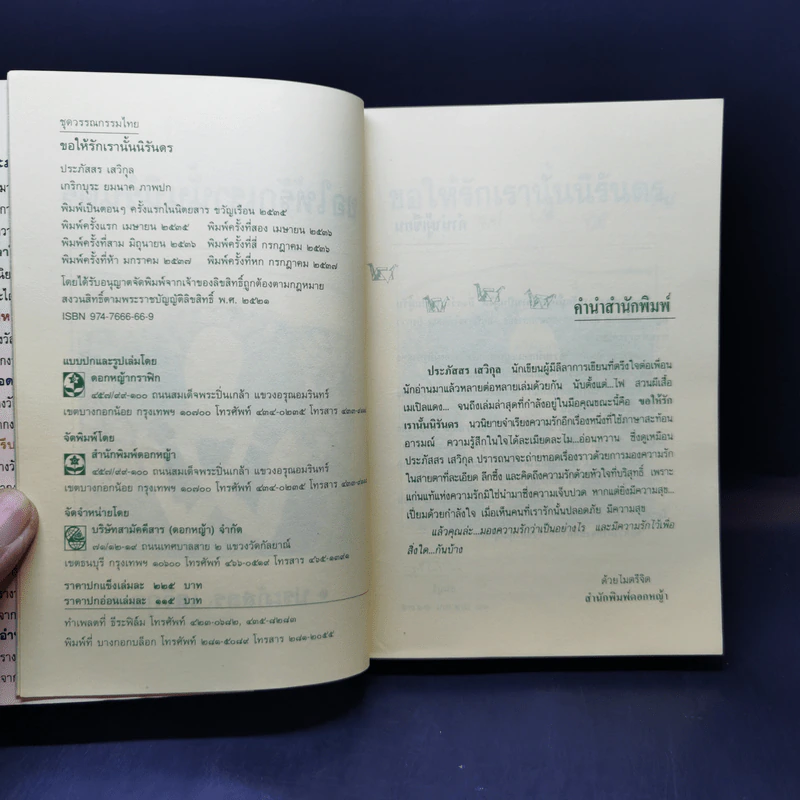 ชุดวรรณกรรมไทย
ขอให้รักเรานั้นนิรันดร
ประภัสสร เสวิกุล
เกริกบุระ ยมนาค ภาพปก
พิมพ์เป็นตอนๆ ครั้งแรกในนิตยสาร ขวัญเรือน ๒๕๓๕
พิมพ์ครั้งแรก เมษายน ๒๕๓๕ พิมพ์ครั้งที่สอง เมษายน ๒๕๓๖
พิมพ์ครั้งที่สาม มิถุนายน ๒๕๓๖ พิมพ์ครั้งที่สี่ กรกฎาคม ๒๕๓๖
พิมพ์ครั้งที่ห้า มกราคม ๒๕๓๗ พิมพ์ครั้งที่หก กรกฎาคม ๒๕๓๗
โดยได้รับอนุญาตจัดพิมพ์จากเจ้าของลิขสิทธิ์ถูกต้องตามกฎหมาย
สงวนสิทธิ์ตามพระราชบัญญัติลิขสิทธิ์ พ.ศ. ๒๕๒๑
ISBN 974-7666-66-9
แบบปกและรูปเล่มโดย
ดอกหญ้ากราฟิก
๔๕๗/๙๙-๑๐๐ ถนนสมเด็จพระปิ่นเกล้า แขวงอรุณอมรินทร์
เขตบางกอกน้อย กรุงเทพฯ ๑๐๗๐๐ โทรศัพท์ ๔๓๔-๐๒๓๕ โทรสาร
จัดพิมพ์โดย
สำนักพิมพ์ดอกหญ้า
๔๕๗/๙๙-๑๐๐ ถนนสมเด็จพระปิ่นเกล้า แขวงอรุณอมรินทร์
เขตบางกอกน้อย กรุงเทพฯ ๑๐๗๐๐ โทรศัพท์ ๔๓๔-๐๒๓๕ โทรสาร
จัดจำหน่ายโดย
บริษัทสามัคคีสาร (ดอกหญ้า) จำกัด
๗๑/๑๒-๑๙ ถนนเทศบาลสาย ๒ แขวงวัดกัลยาณ์
เขตธนบุรี กรุงเทพฯ ๑๐๖๐๐ โทรศัพท์ ๔๖๖-๐๕๑๙ โทรสาร ๔๖๕-๑๓๙๑
ราคาปกแข็งเล่มละ ๒๒๕ บาท
ราคาปกอ่อนเล่มละ ๑๑๕ บาท
ทำเพลตที่ ธีระฟิล์ม โทรศัพท์ ๔๒๓-๐๖๘๒, ๔๓๕-๘๒๘๓
พิมพ์ที่ บางกอกบล็อก โทรศัพท์ ๒๘๑-๕๐๘๙ โทรสาร ๒๘๑-๒๐๕๕
คำนำสำนักพิมพ์
ประภัสสร เสวิกุล นักเขียนผู้มีลีลาการเขียนที่ตรึงใจต่อเพื่อน
นักอ่านมาแล้วหลายต่อหลายเล่มด้วยกัน นับตั้งแต่...ไฟ สวนผีเสื้อ
เมเปิลแดง... จนถึงเล่มล่าสุดที่กำลังอยู่ในมือคุณขณะนี้คือ ขอให้รัก
เรานั้นนิรันดร นวนิยายจำเรียงความรักอีกเรื่องหนึ่งที่ใช้ภาษาสะท้อน
อารมณ์ ความรู้สึกในใจได้ละเมียดละไม...อ่อนหวาน ซึ่งดูเหมือน
ประภัสสร เสวิกุล ปรารถนาจะถ่ายทอดเรื่องราวด้วยการมองความรัก
ในสายตาที่ละเอียด ลึกซึ้ง และคิดถึงความรักด้วยหัวใจที่บริสุทธิ์ เพราะ
แก่นแท้แห่งความรักมิใช่นำมาซึ่งความเจ็บปวด หากแต่ยิ่งมีความสุข...
เปี่ยมด้วยกำลังใจ เมื่อเห็นคนที่เรารักนั้นปลอดภัย มีความสุข
แล้วคุณล่ะ...มองความรักว่าเป็นอย่างไร และมีความรักไว้เพื่อ
สิ่งใด...กันบ้าง
ด้วยไมตรีจิต
สำนักพิมพ์ดอกหญ้า